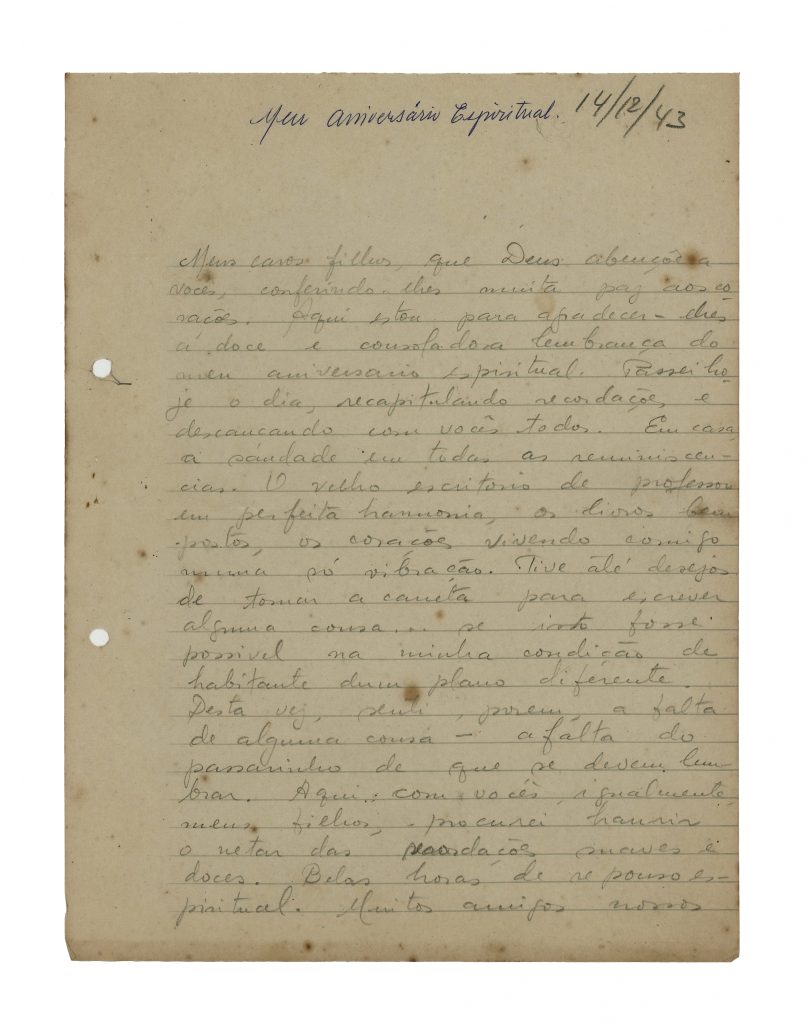 Meu Aniversário Espiritual. 14/12/43
Meus caros filhos, que Deus abençôe a
vocês, conferindo-lhes muita paz aos co
rações. Aqui estou para agradecer-lhes
a doce e consoladora lembrança do
meu aniversario espiritual. Passei ho-
je o dia, recapitulando recordações e
descançando com vocês todos. Em casa,
a saudade em todas as reminiscen-
cias. O velho escritorio de professor
em perfeita harmonia, os livros bem
postos, os corações vivendo comigo
numa só vibração. Tive até desejos
de tomar a canêta para escrever
alguma cousa... se isto fosse
possivel na minha condição de
habitante dum plano diferente.
Desta vez, senti, porem, a falta
de alguma cousa — a falta do
passarinho de que se devem lem-
brar. Aqui, com vocês, igualmente,
meus filhos, procurei haurir
o netar das recordações suaves e
doces. Belas horas de repouso es-
piritual. Muitos amigos nossos